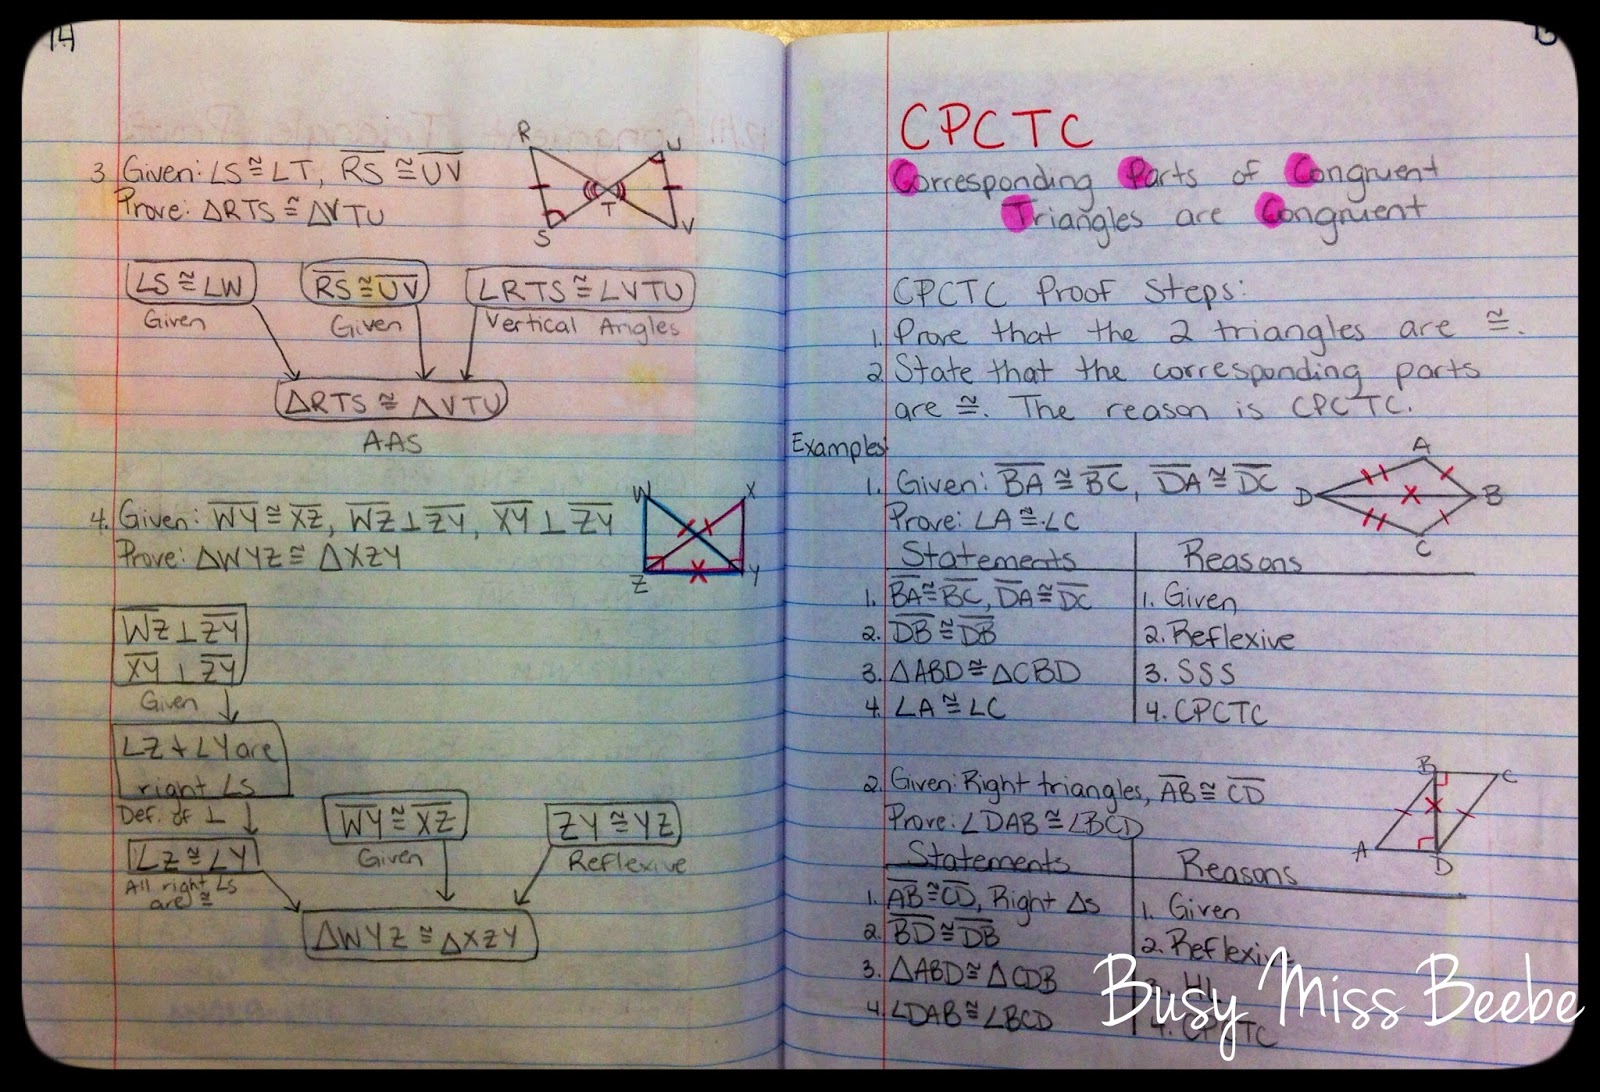 14
3. Given: ∠S ≅ ∠T, RS ≅ UV
Prove: △RTS ≅ △VTU
R
U
T
S
V
∠S ≅ ∠W
Given
RS ≅ UV
Given
∠RTS ≅ ∠VTU
Vertical Angles
△RTS ≅ △VTU
AAS
4. Given: WY ≅ XZ, WZ ⊥ ZY, XY ⊥ ZY
Prove: △WYZ ≅ △XZY
W
X
Z
Y
WZ ⊥ ZY
XY ⊥ ZY
Given
∠Z + ∠Y are
right ∠s
Def. of ⊥
∠Z ≅ ∠Y
All right ∠s
are ≅
WY ≅ XZ
Given
ZY ≅ YZ
Reflexive
△WYZ ≅ △XZY
CPCTC
Corresponding Parts of Congruent
Triangles are Congruent
CPCTC Proof Steps:
1. Prove that the 2 triangles are ≅.
2. State that the corresponding parts
are ≅. The reason is CPCTC.
Examples:
1. Given: BA ≅ BC, DA ≅ DC
Prove: ∠A ≅ ∠C
A
D
B
C
Statements Reasons
1. BA ≅ BC, DA ≅ DC 1. Given
2. DB ≅ DB 2. Reflexive
3. △ABD ≅ △CBD 3. SSS
4. ∠A ≅ ∠C 4. CPCTC
2. Given: Right triangles, AB ≅ CD
Prove: ∠DAB ≅ ∠BCD
B
C
A
D
Statements Reasons
1. AB ≅ CD, Right △s 1. Given
2. BD ≅ DB 2. Reflexive
3. △ABD ≅ △CDB 3. HL
4. ∠DAB ≅ ∠BCD 4. CPCTC
Busy Miss Beebe